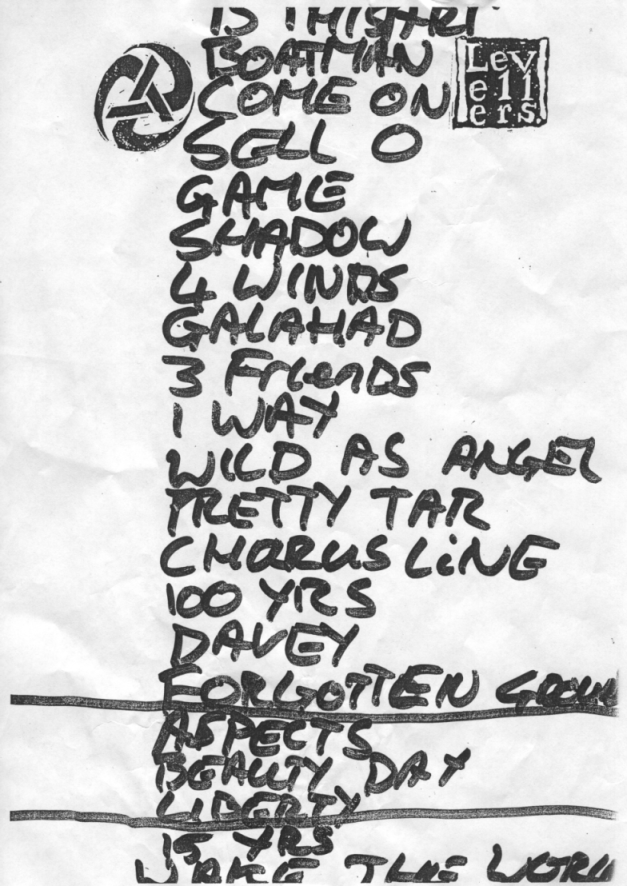 IS THIS ART
BOATMAN
COME ON
Lev
ell
ers.
SELL O
GAME
SHADOW
4 WINDS
GALAHAD
3 FrienDS
1 WAY
WILD AS ANGEL
PRETTY TAR
CHORUS LiNE
100 YRS
DAVEY
FORGOTTEN GROUN
ASPECTS
BEAUTY DAY
LIBERTY
15 YRS
WAKE THE WORL